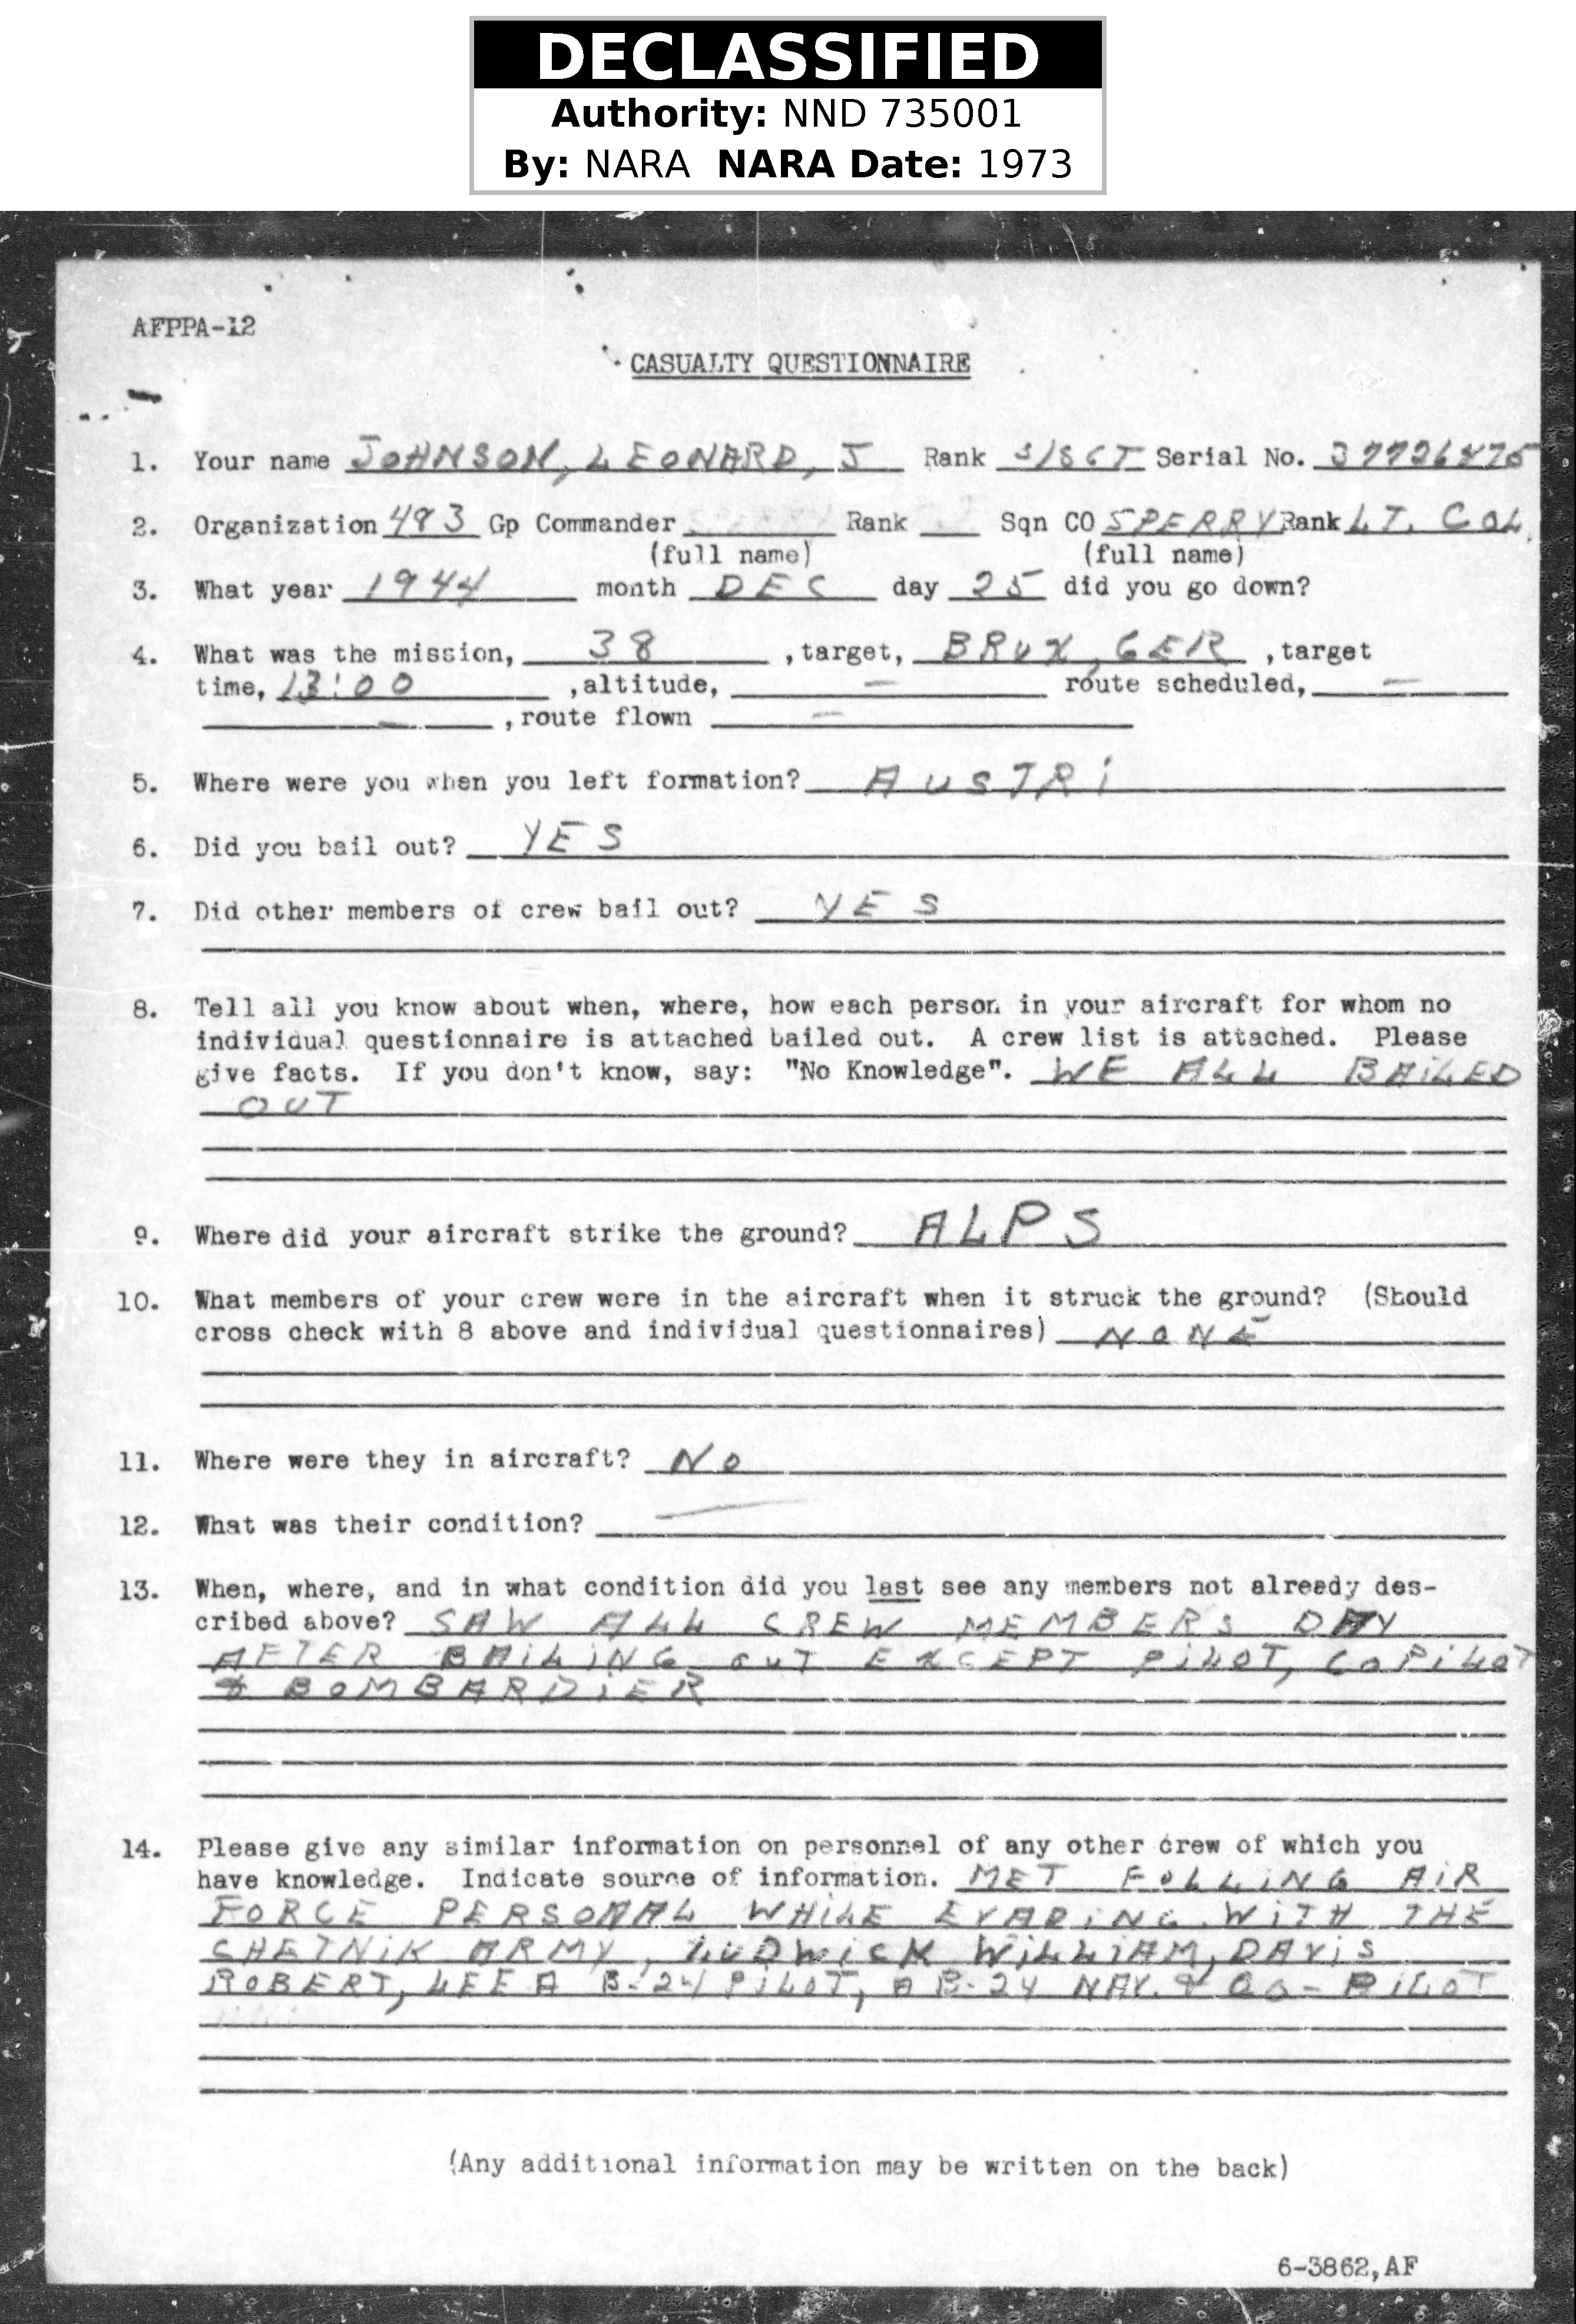 DECLASSIFIED
Authority: NND 735001
By: NARA NARA Date: 1973
AFPPA-12
CASUALTY QUESTIONNAIRE
1. Your name JOHNSON, LEONARD, J Rank S/SGT Serial No.
2. Organization 483 Gp Commander Rank Sqn CO SPERRY Rank LT. COL.
(full name) (full name)
3. What year 1944 month DEC day 25 did you go down?
4. What was the mission, 38 ,target, BRUX, GER ,target
time, 13:00 ,altitude, — route scheduled, —
— ,route flown —
5. Where were you when you left formation? AUSTRI
6. Did you bail out? YES
7. Did other members of crew bail out? YES
8. Tell all you know about when, where, how each person in your aircraft for whom no
individual questionnaire is attached bailed out. A crew list is attached. Please
give facts. If you don't know, say: "No Knowledge". WE ALL BAILED
OUT
9. Where did your aircraft strike the ground? ALPS
10. What members of your crew were in the aircraft when it struck the ground? (Should
cross check with 8 above and individual questionnaires) NONE
11. Where were they in aircraft? NO
12. What was their condition? —
13. When, where, and in what condition did you last see any members not already des-
cribed above? SAW ALL CREW MEMBERS DAY
AFTER BAILING OUT EXCEPT PILOT, COPILOT
& BOMBARDIER
14. Please give any similar information on personnel of any other crew of which you
have knowledge. Indicate source of information. MET FOLLING AIR
FORCE PERSONAL WHILE EVADING WITH THE
CHETNIK ARMY, LUDWICK WILLIAM, DAVIS
ROBERT, LEE A B-24 PILOT, A B-24 NAV. & CO-PILOT
(Any additional information may be written on the back)
6-3862,AF